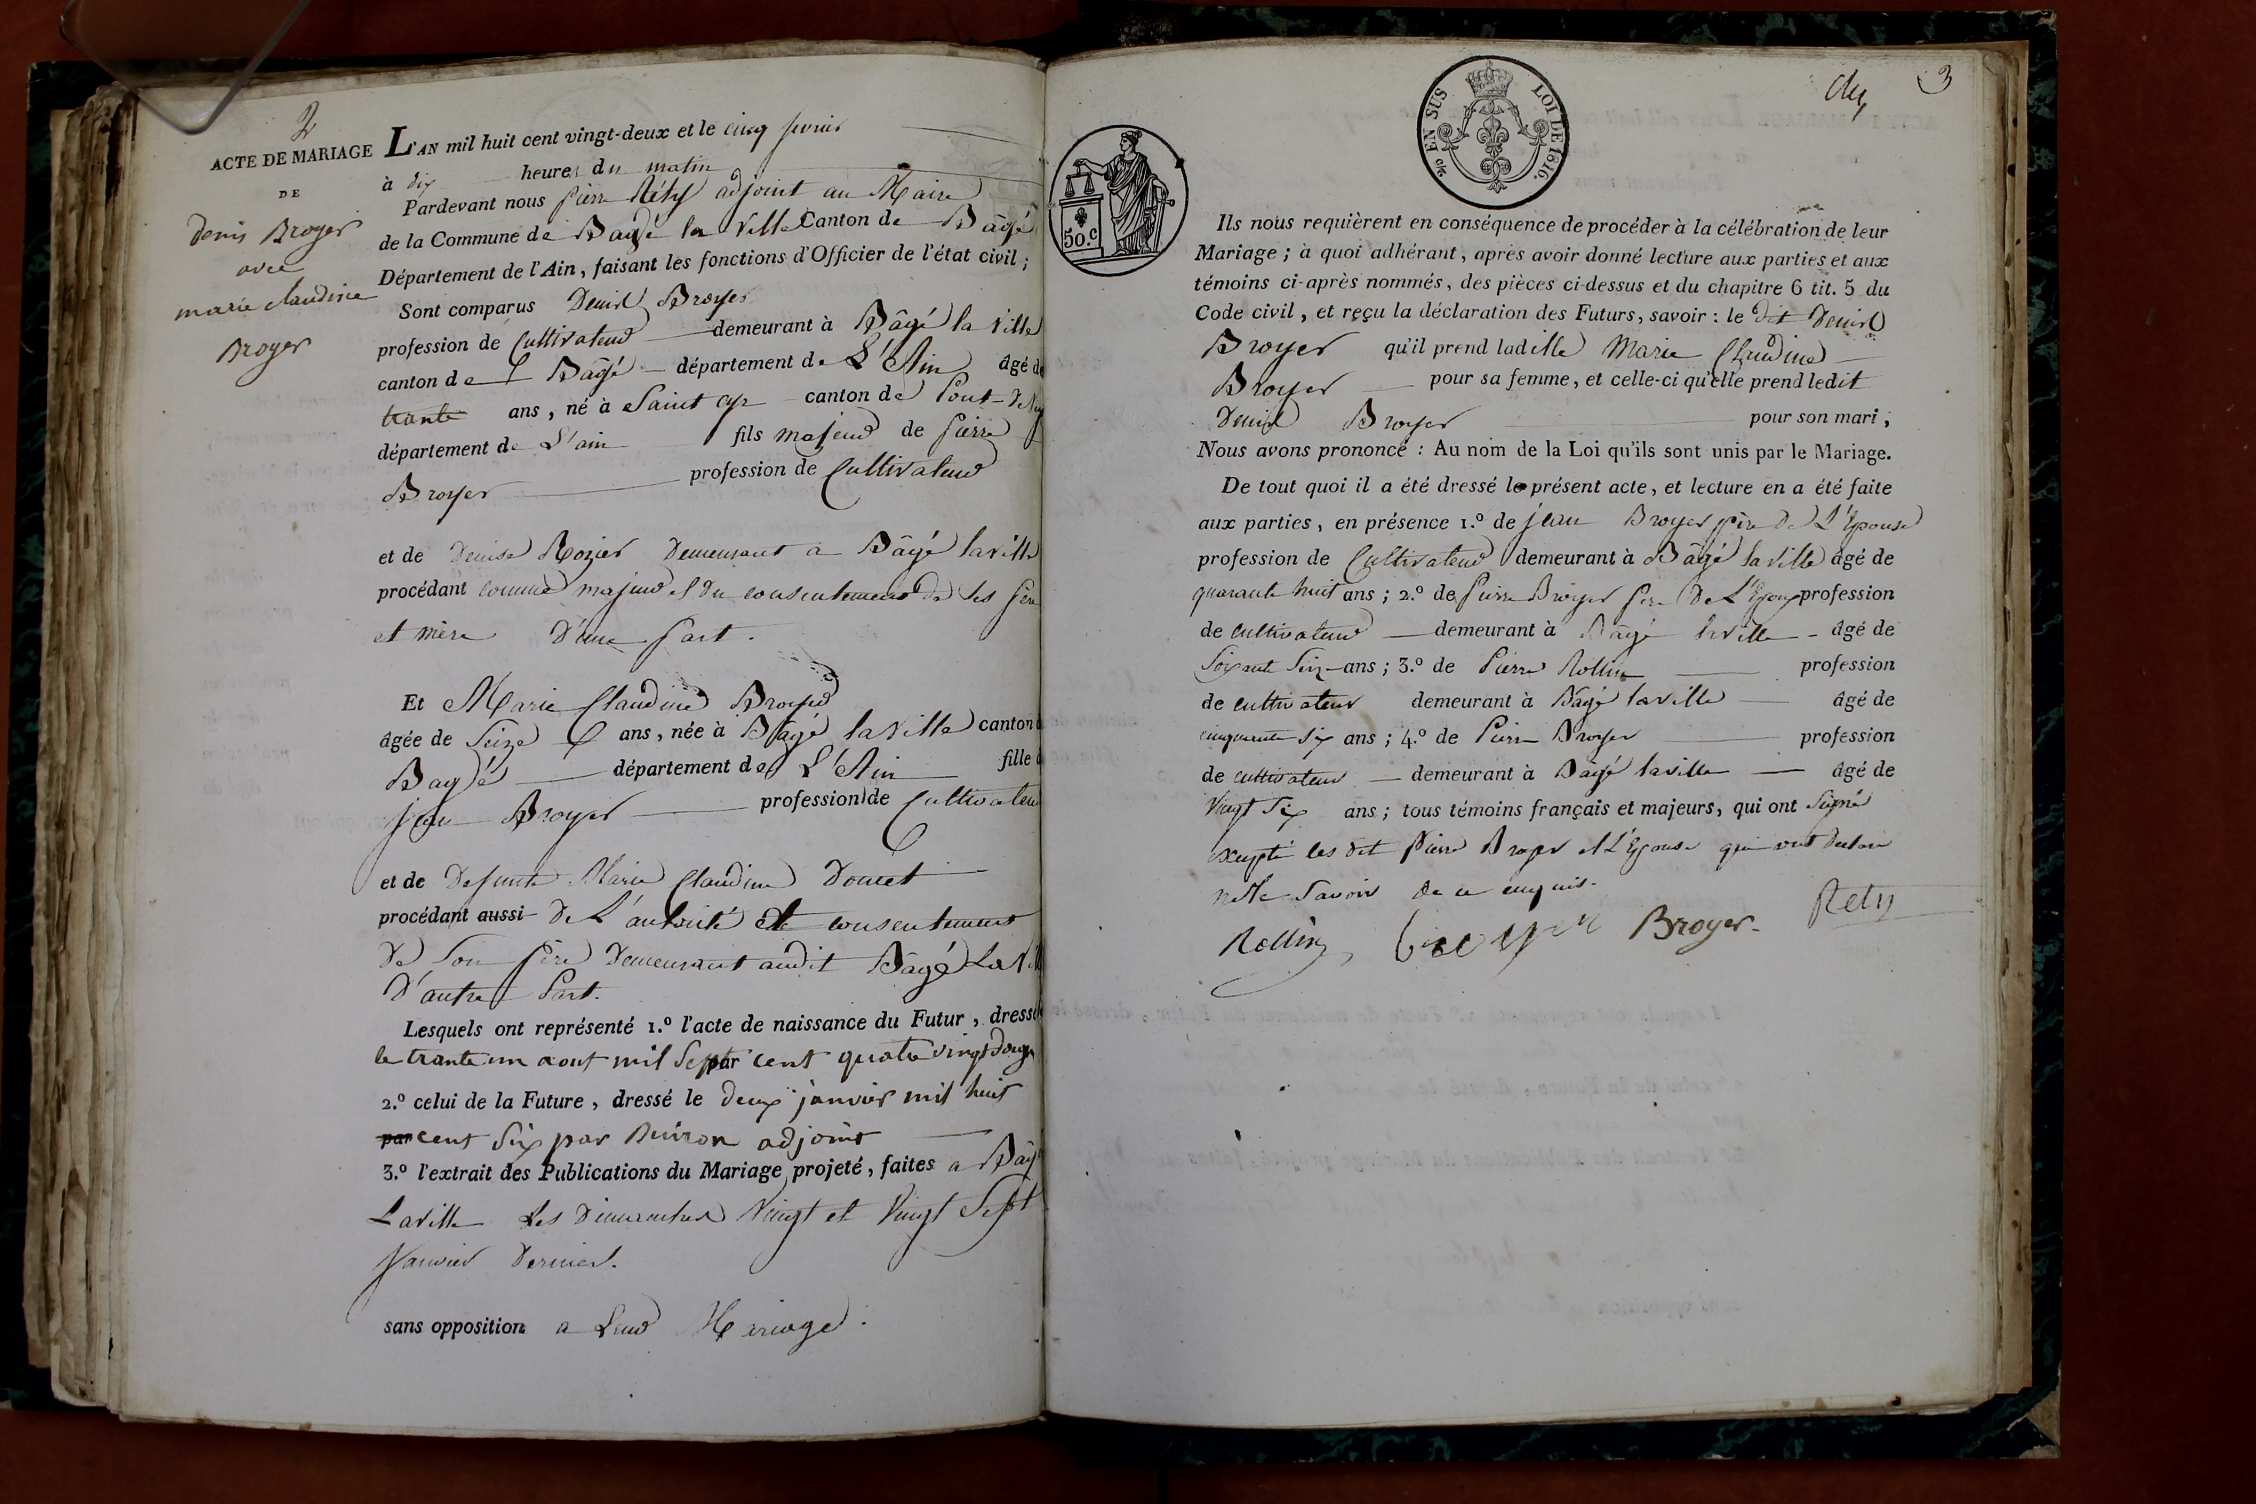 2
ACTE DE MARIAGE
DE
Denis Broyer
avec
marie claudine
Broyer
L'AN mil huit cent vingt-deux et le cinq fevrier
à dix heures du matin
Pardevant nous pierre Réty adjoint au Maire
de la Commune de Bagé la Ville Canton de Bâgé
Département de l'Ain, faisant les fonctions d'Officier de l'état civil ;
Sont comparus Denis Broyer
profession de Cultivateur demeurant à Bâgé la Ville
canton de Bâgé département de L'Ain âgé de
trante ans, né à Saint Cyr canton de Pont-de
département de L'ain fils majeur de pierre
Broyer profession de Cultivateur
et de Denise Rozier Demeurant a Bâgé laville
procédant comme majeur et du consentement de ses père
et mère D'une part.
Et Marie Claudine Broyer
âgée de Seize ans, née à Bâgé laville canton
Bagé département de L'Ain fille
jean Broyer profession de Cultivateur
et de Defunte Marie Claudine Doucet
procédant aussi De L'autorité et consentement
De Son père Demeurant audit Bâgé La
D'autre Part.
Lesquels ont représenté 1.º l'acte de naissance du Futur, dressé
le trante un aout mil Sept par cent quatre vingt douze
2.º celui de la Future, dressé le deux janvier mil huit
par cent Six par Buiron adjoint
3.º l'extrait des Publications du Mariage projeté, faites a Bâgé
Laville Les Dimanches Vingt et Vingt Sept
Janvier Dernier.
sans opposition a Leur Mariage.
3
EN SUS
LOI DE 1816.
50.c
Ils nous requièrent en conséquence de procéder à la célébration de leur
Mariage ; à quoi adhérant, après avoir donné lecture aux parties et aux
témoins ci-après nommés, des pièces ci-dessus et du chapitre 6 tit. 5 du
Code civil, et reçu la déclaration des Futurs, savoir : le dit Denis
Broyer qu'il prend ladille Marie Claudine
Broyer pour sa femme, et celle-ci qu'elle prend ledit
Denis Broyer pour son mari ;
Nous avons prononcé : Au nom de la Loi qu'ils sont unis par le Mariage.
De tout quoi il a été dressé le présent acte, et lecture en a été faite
aux parties, en présence 1.º de jean Broyer père De L'Epouse
profession de Cultivateur demeurant à Bâgé laVille âgé de
quarante huit ans ; 2.º de Pierre Broyer pere De L'Epoux profession
de cultivateur demeurant à Bagé laville âgé de
Soixant Seize ans ; 3.º de Pierre Rollin profession
de cultivateur demeurant à Bâgé laville âgé de
cinquante six ans ; 4.º de Pierre Broyer profession
de cultivateur demeurant à Bâgé laville âgé de
Vingt Six ans ; tous témoins français et majeurs, qui ont Signé
excepté les dit Pierre Broyer et L'Epouse qui ont declaré
ne le Savoir de ce enquis.
Rollin Broyer Rety